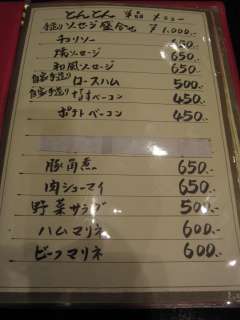 とんとん 単品 メニュー
手造りソーセージ盛合せ ¥1,000.-
チョリソー 650.-
焼ソーセージ 650.-
和風ソーセージ 650.-
自家手造り ロースハム 500.-
自家手造り ベーコン 450.-
ポテトベーコン 450.-
豚角煮 650.-
肉シューマイ 650.-
野菜サラダ 500.-
ハムマリネ 600.-
ビーフマリネ 600.-